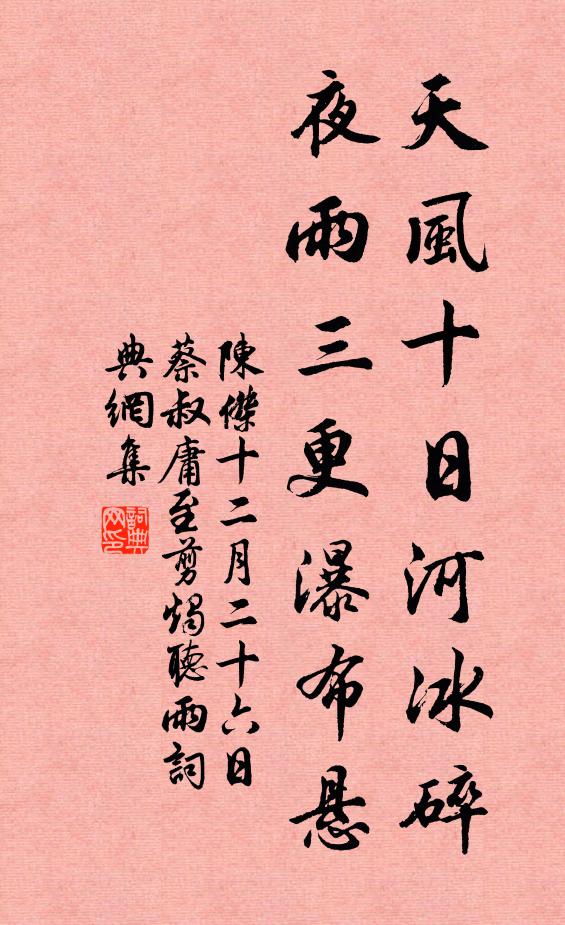 天風十日河冰碎
夜雨三更瀑布悬
陳傑十二月二十六日
蔡叔庸至剪燭聽雨詞
典網集
詞典網印